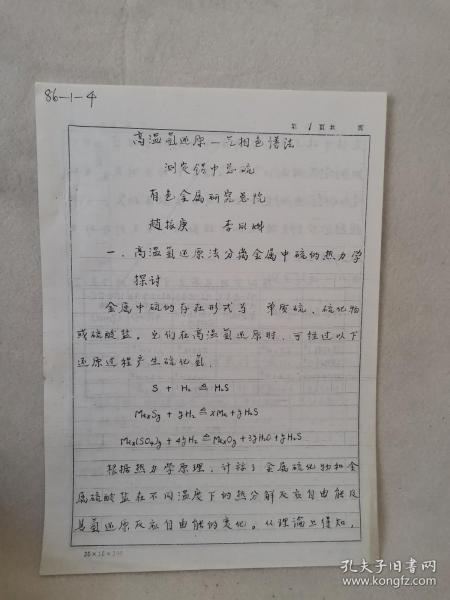 86-1-4
第 1 页共 页
高温氢还原—气相色谱法
测定锆中总硫
有色金属研究总院
赵振庚 李
一、高温氢还原法分离金属中硫的热力学
探讨
金属中硫的存在形式为 单质硫、硫化物
或硫酸盐。它们在高温氢还原时,可经过以下
还原过程产生硫化氢。
S + H₂ ≙ H₂S
MexSy + yH₂ ≙ xMe + yH₂S
Mex(SO₄)y + 4yH₂ ≙ MexOy + 3yH₂O + yH₂S
根据热力学原理,计算了金属硫化物和金
属硫酸盐在不同温度下的热分解反应自由能及
其氢还原反应自由能的变化。从理论上得知,
孔夫子旧书网
www.kongfz.com